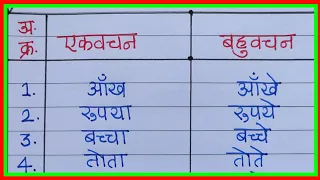 अ.
क्र. एकवचन बहुवचन
1. आँख आँखे
2. रुपया रुपये
3. बच्चा बच्चे
4. तोता तोते